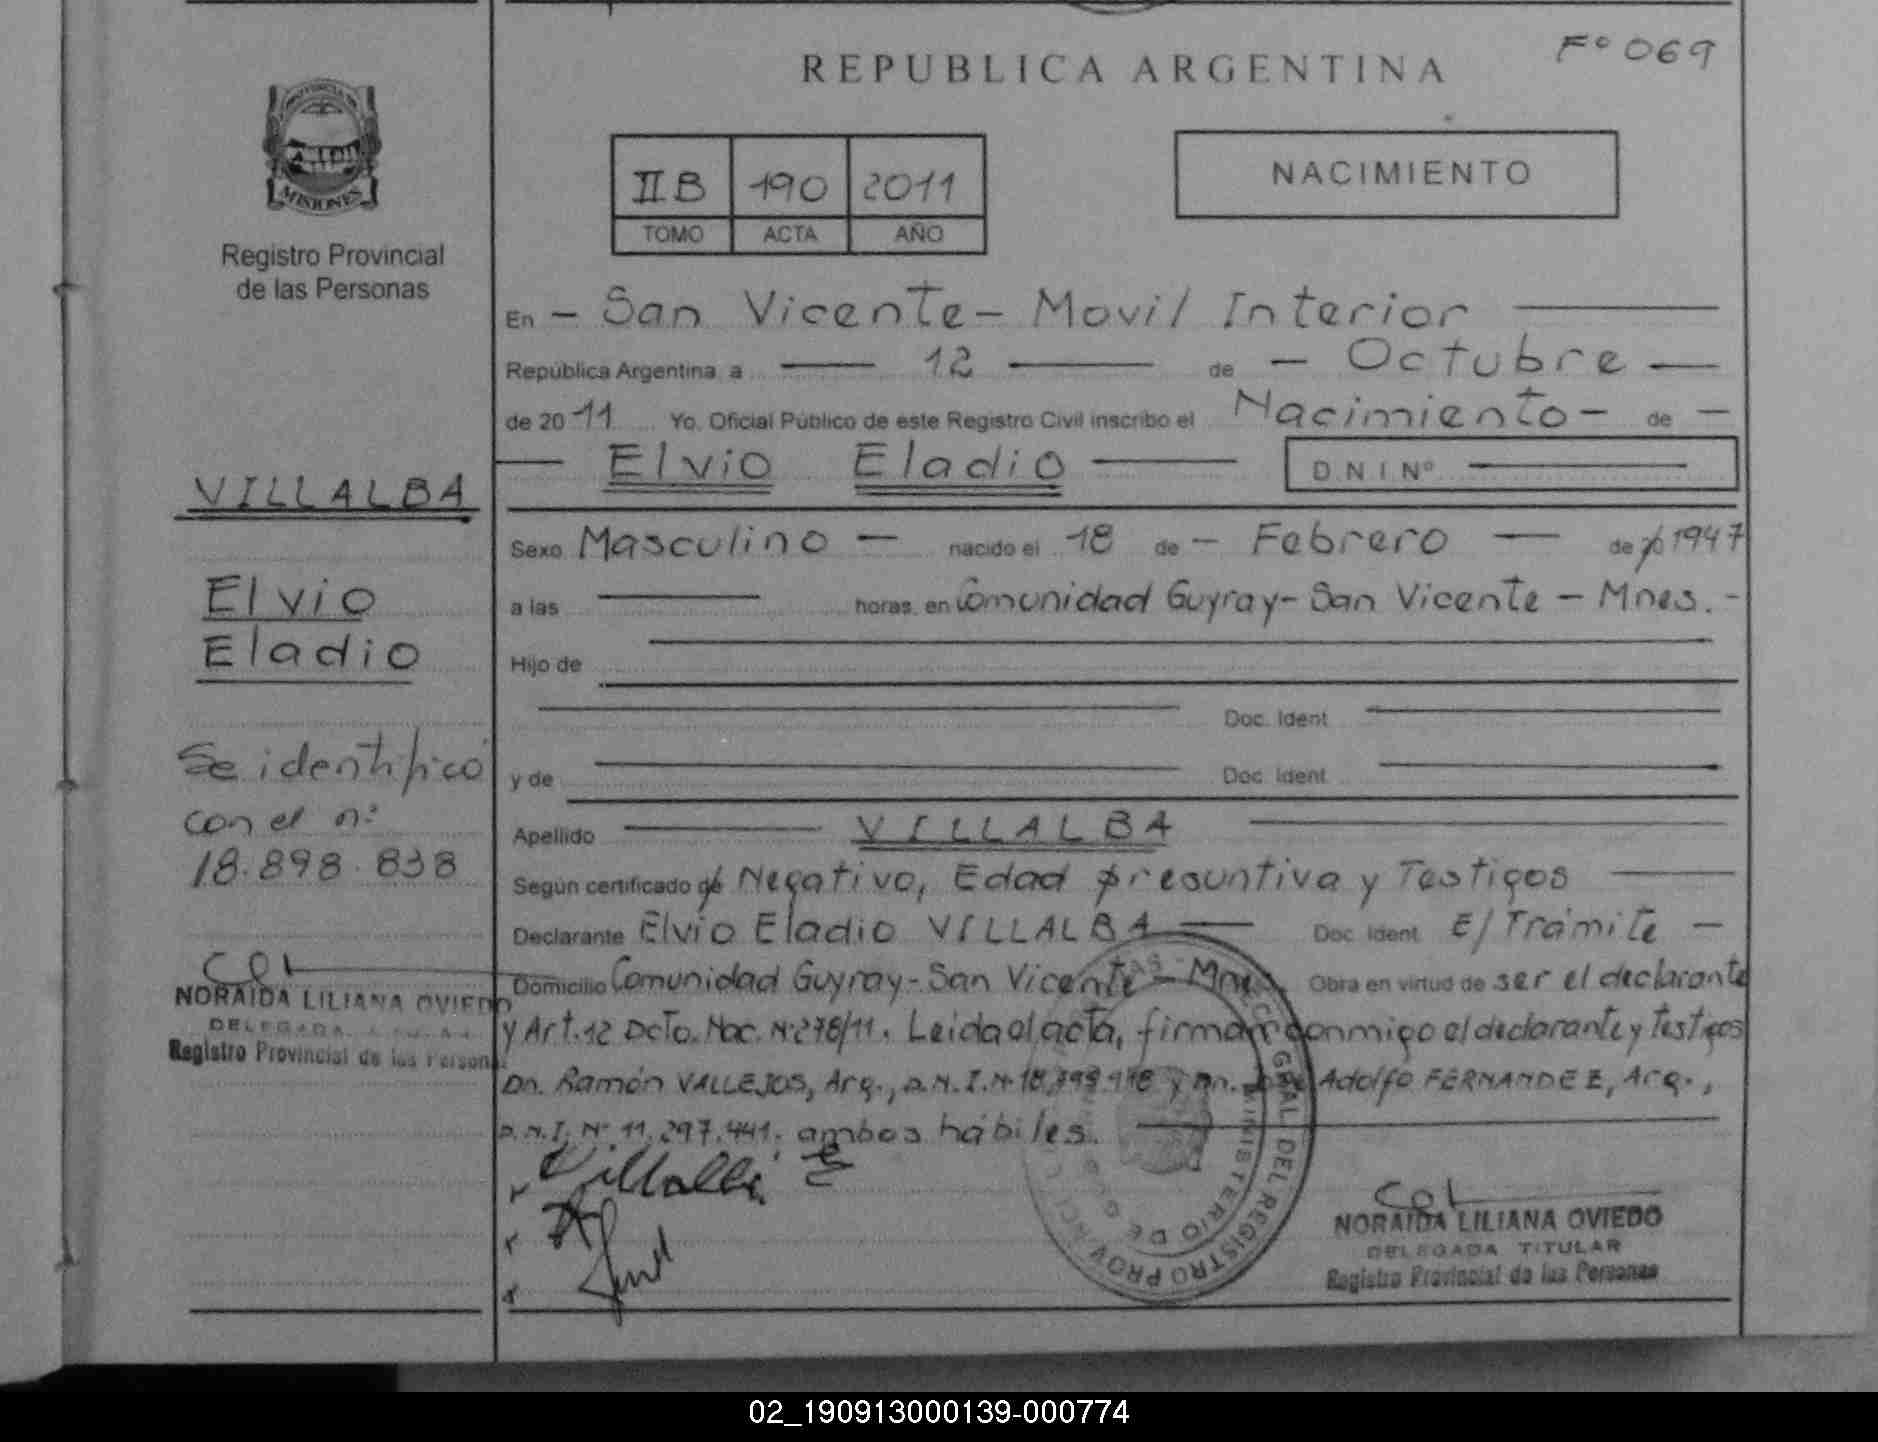 REPUBLICA ARGENTINA
Fº 069
IIB 190 2011
TOMO ACTA AÑO
NACIMIENTO
MISIONES
Registro Provincial
de las Personas
VILLALBA
Elvio
Eladio
Se identificó
con el nº
18.898.838
NORAIDA LILIANA OVIEDO
DELEGADA
Registro Provincial de las Personas
En - San Vicente - Movil Interior
República Argentina, a 12 de - Octubre
de 2011 Yo, Oficial Público de este Registro Civil inscribo el Nacimiento - de -
Elvio Eladio D.N.I Nº
Sexo Masculino - nacido el 18 de - Febrero - de 1947
a las horas, en Comunidad Guyray - San Vicente - Mnes. -
Hijo de
Doc. Ident.
y de Doc. Ident.
Apellido VILLALBA
Según certificado de Negativo, Edad presuntiva y Testigos
Declarante Elvio Eladio VILLALBA Doc. Ident. E/Trámite -
Domicilio Comunidad Guyray - San Vicente - Mnes. Obra en virtud de ser el declarante
y Art. 12 Dcto. Nac. Nº 278/11. Leida el acta, firman conmigo el declarante y testigos
Dn. Ramón VALLEJOS, Arg., D.N.I. Nº y Dn. Adolfo FERNANDEZ, Arg.,
D.N.I. Nº 11.297.441. ambos hábiles.
Villalba E
NORAIDA LILIANA OVIEDO
DELEGADA TITULAR
Registro Provincial de las Personas
GRAL. DEL REGISTRO PROVINCIAL
MINISTERIO DE
02_190913000139-000774